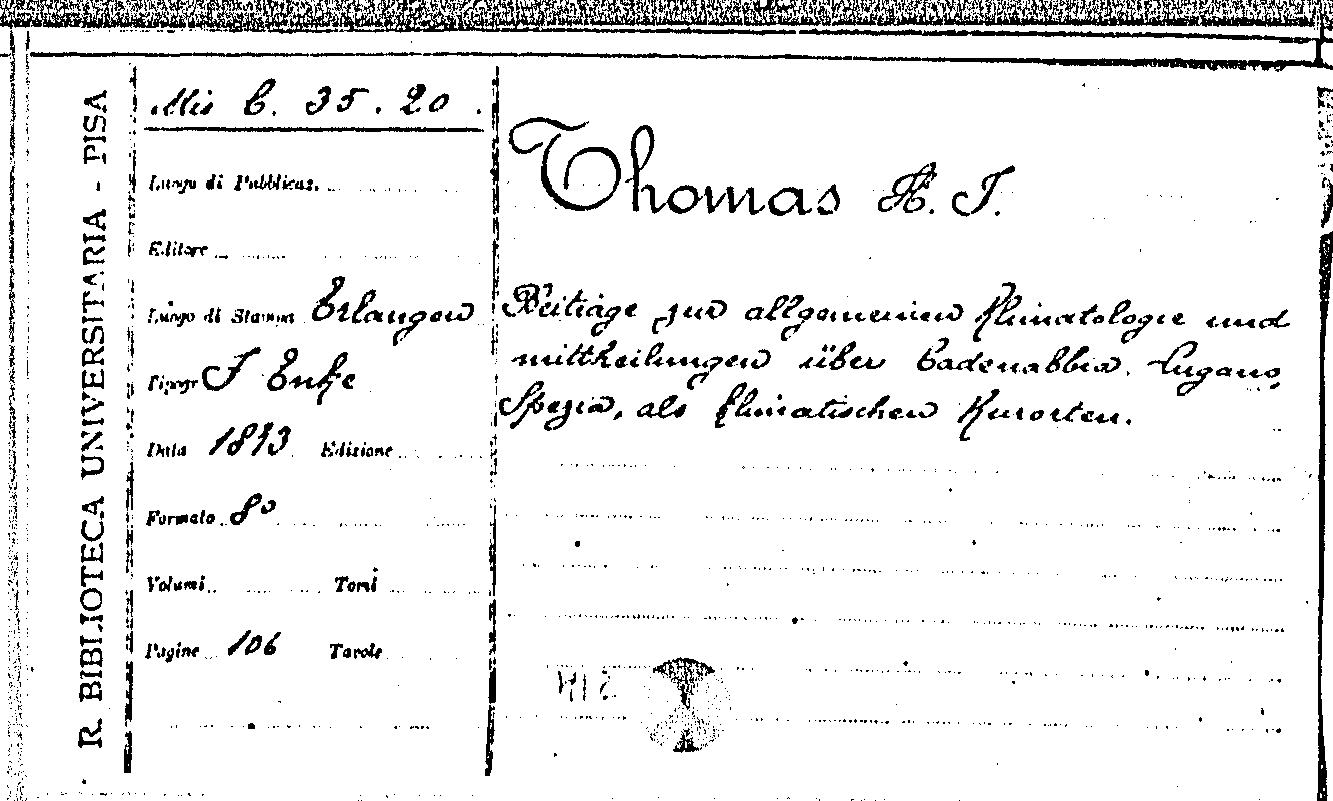 R. BIBLIOTECA UNIVERSITARIA - PISA
Mis C. 35. 20.
Luogo di Pubblicaz.
Editore
Luogo di Stampa Erlangen
Tipogr. F Enke
Data 1873 Edizione
Formato 8°
Volumi Tomi
Pagine 106 Tavole
Thomas H. J.
Beiträge zur allgemeinen Klimatologie und
mittheilungen über Cadenabbia. Lugano,
Spezia, als klimatischen Kurorten.